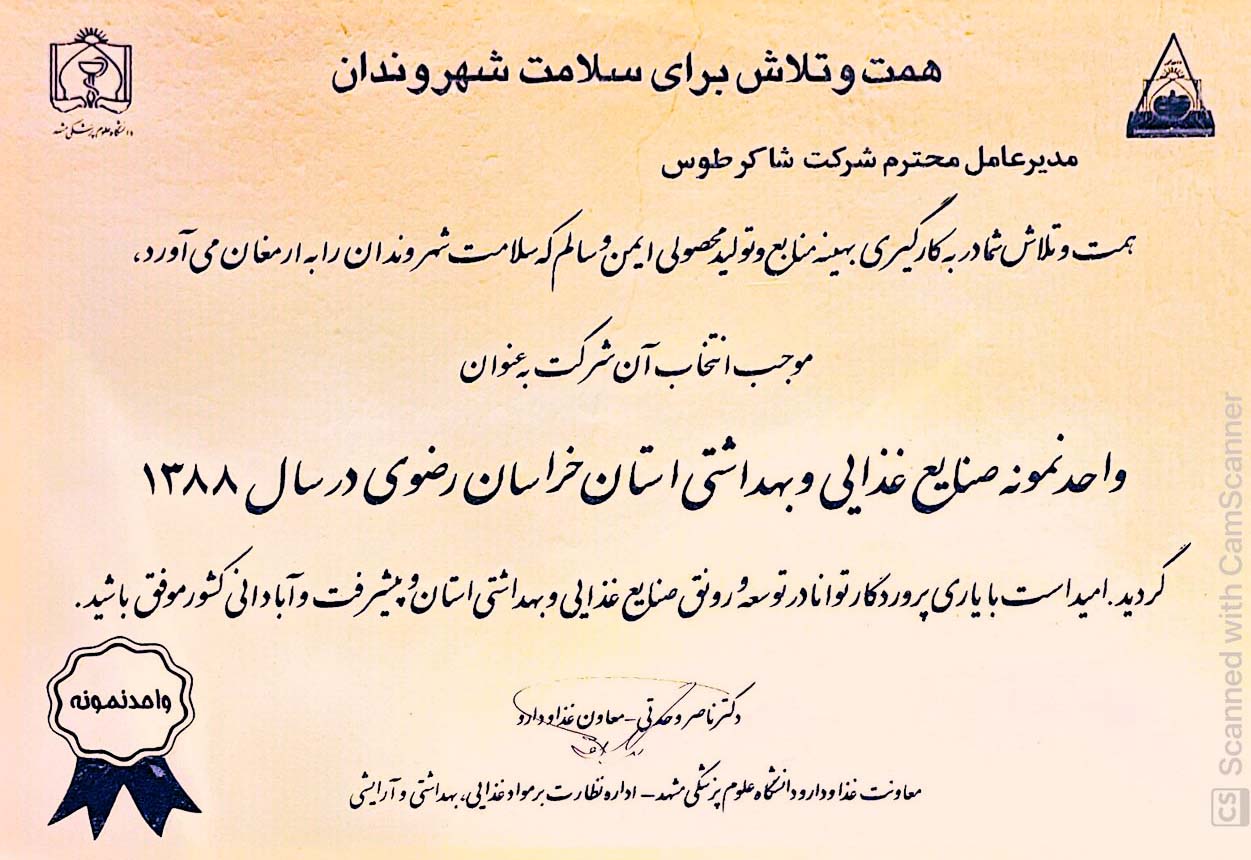 همت و تلاش برای سلامت شهروندان
دانشگاه علوم پزشکی مشهد
مدیرعامل محترم شرکت شاکر طوس
همت و تلاش شما در به کارگیری بهینه منابع و تولید محصولی ایمن و سالم که سلامت شهروندان را به ارمغان می آورد،
موجب انتخاب آن شرکت به عنوان
واحد نمونه صنایع غذایی و بهداشتی استان خراسان رضوی در سال ۱۳۸۸
گردید. امید است با یاری پروردگار توانا در توسعه و رونق صنایع غذایی و بهداشتی استان و پیشرفت و آبادانی کشور موفق باشید.
واحد نمونه
دکتر ناصر وحدتی - معاون غذا و دارو
معاونت غذا و دارو دانشگاه علوم پزشکی مشهد - اداره نظارت بر مواد غذایی، بهداشتی و آرایشی
CS Scanned with CamScanner